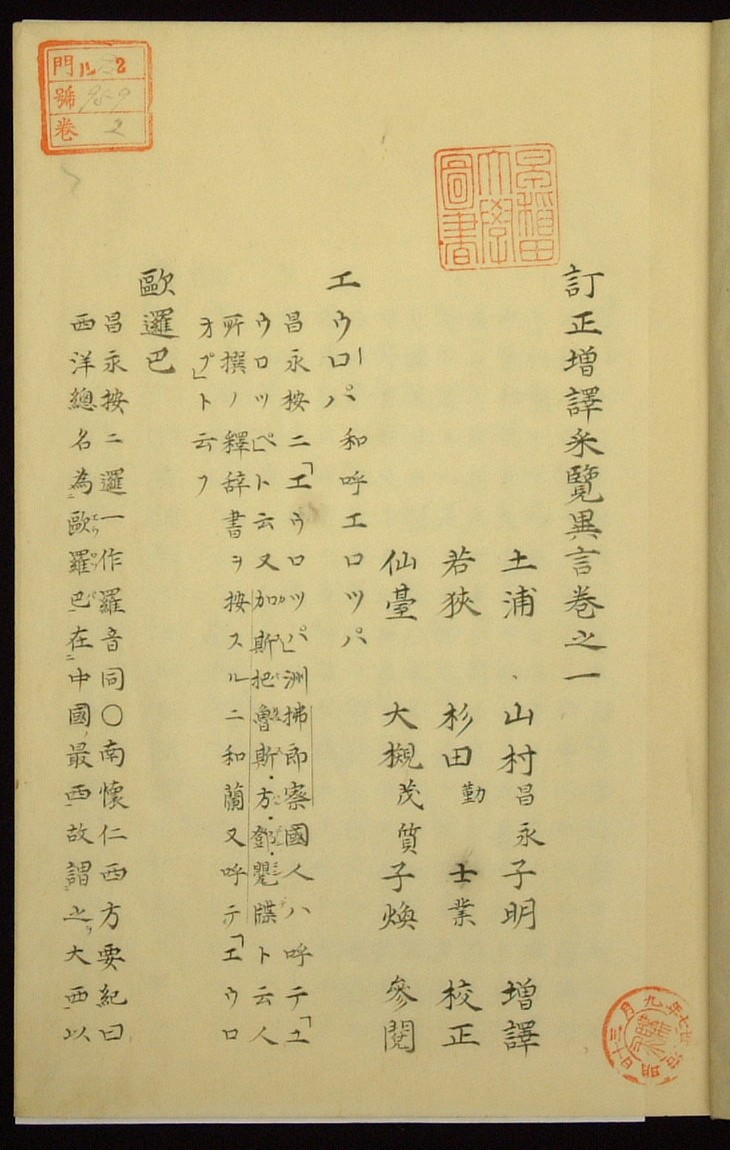 訂正増譯采覽異言卷之一
土浦 山村昌永子明 増譯
若狹 杉田勤 士業 校正
仙臺 大槻茂質子煥 參閲
エウロッパ 和呼エロッパ
昌永按ニ「エウロッパ」洲拂郎察國人ハ呼テ「エ
ウロッペ」ト云又加斯把魯斯・方・鄧・瞿牒ト云人
所撰ノ釋辞書ヲ按スルニ和蘭又呼テ「エウロ
オプ」ト云フ
歐邏巴
昌永按ニ邏一作羅音同〇南懷仁西方要紀曰
西洋總名為歐羅巴在中國最西故謂之大西以
門 ル 2
號 959
卷 2
早稲田大學圖書